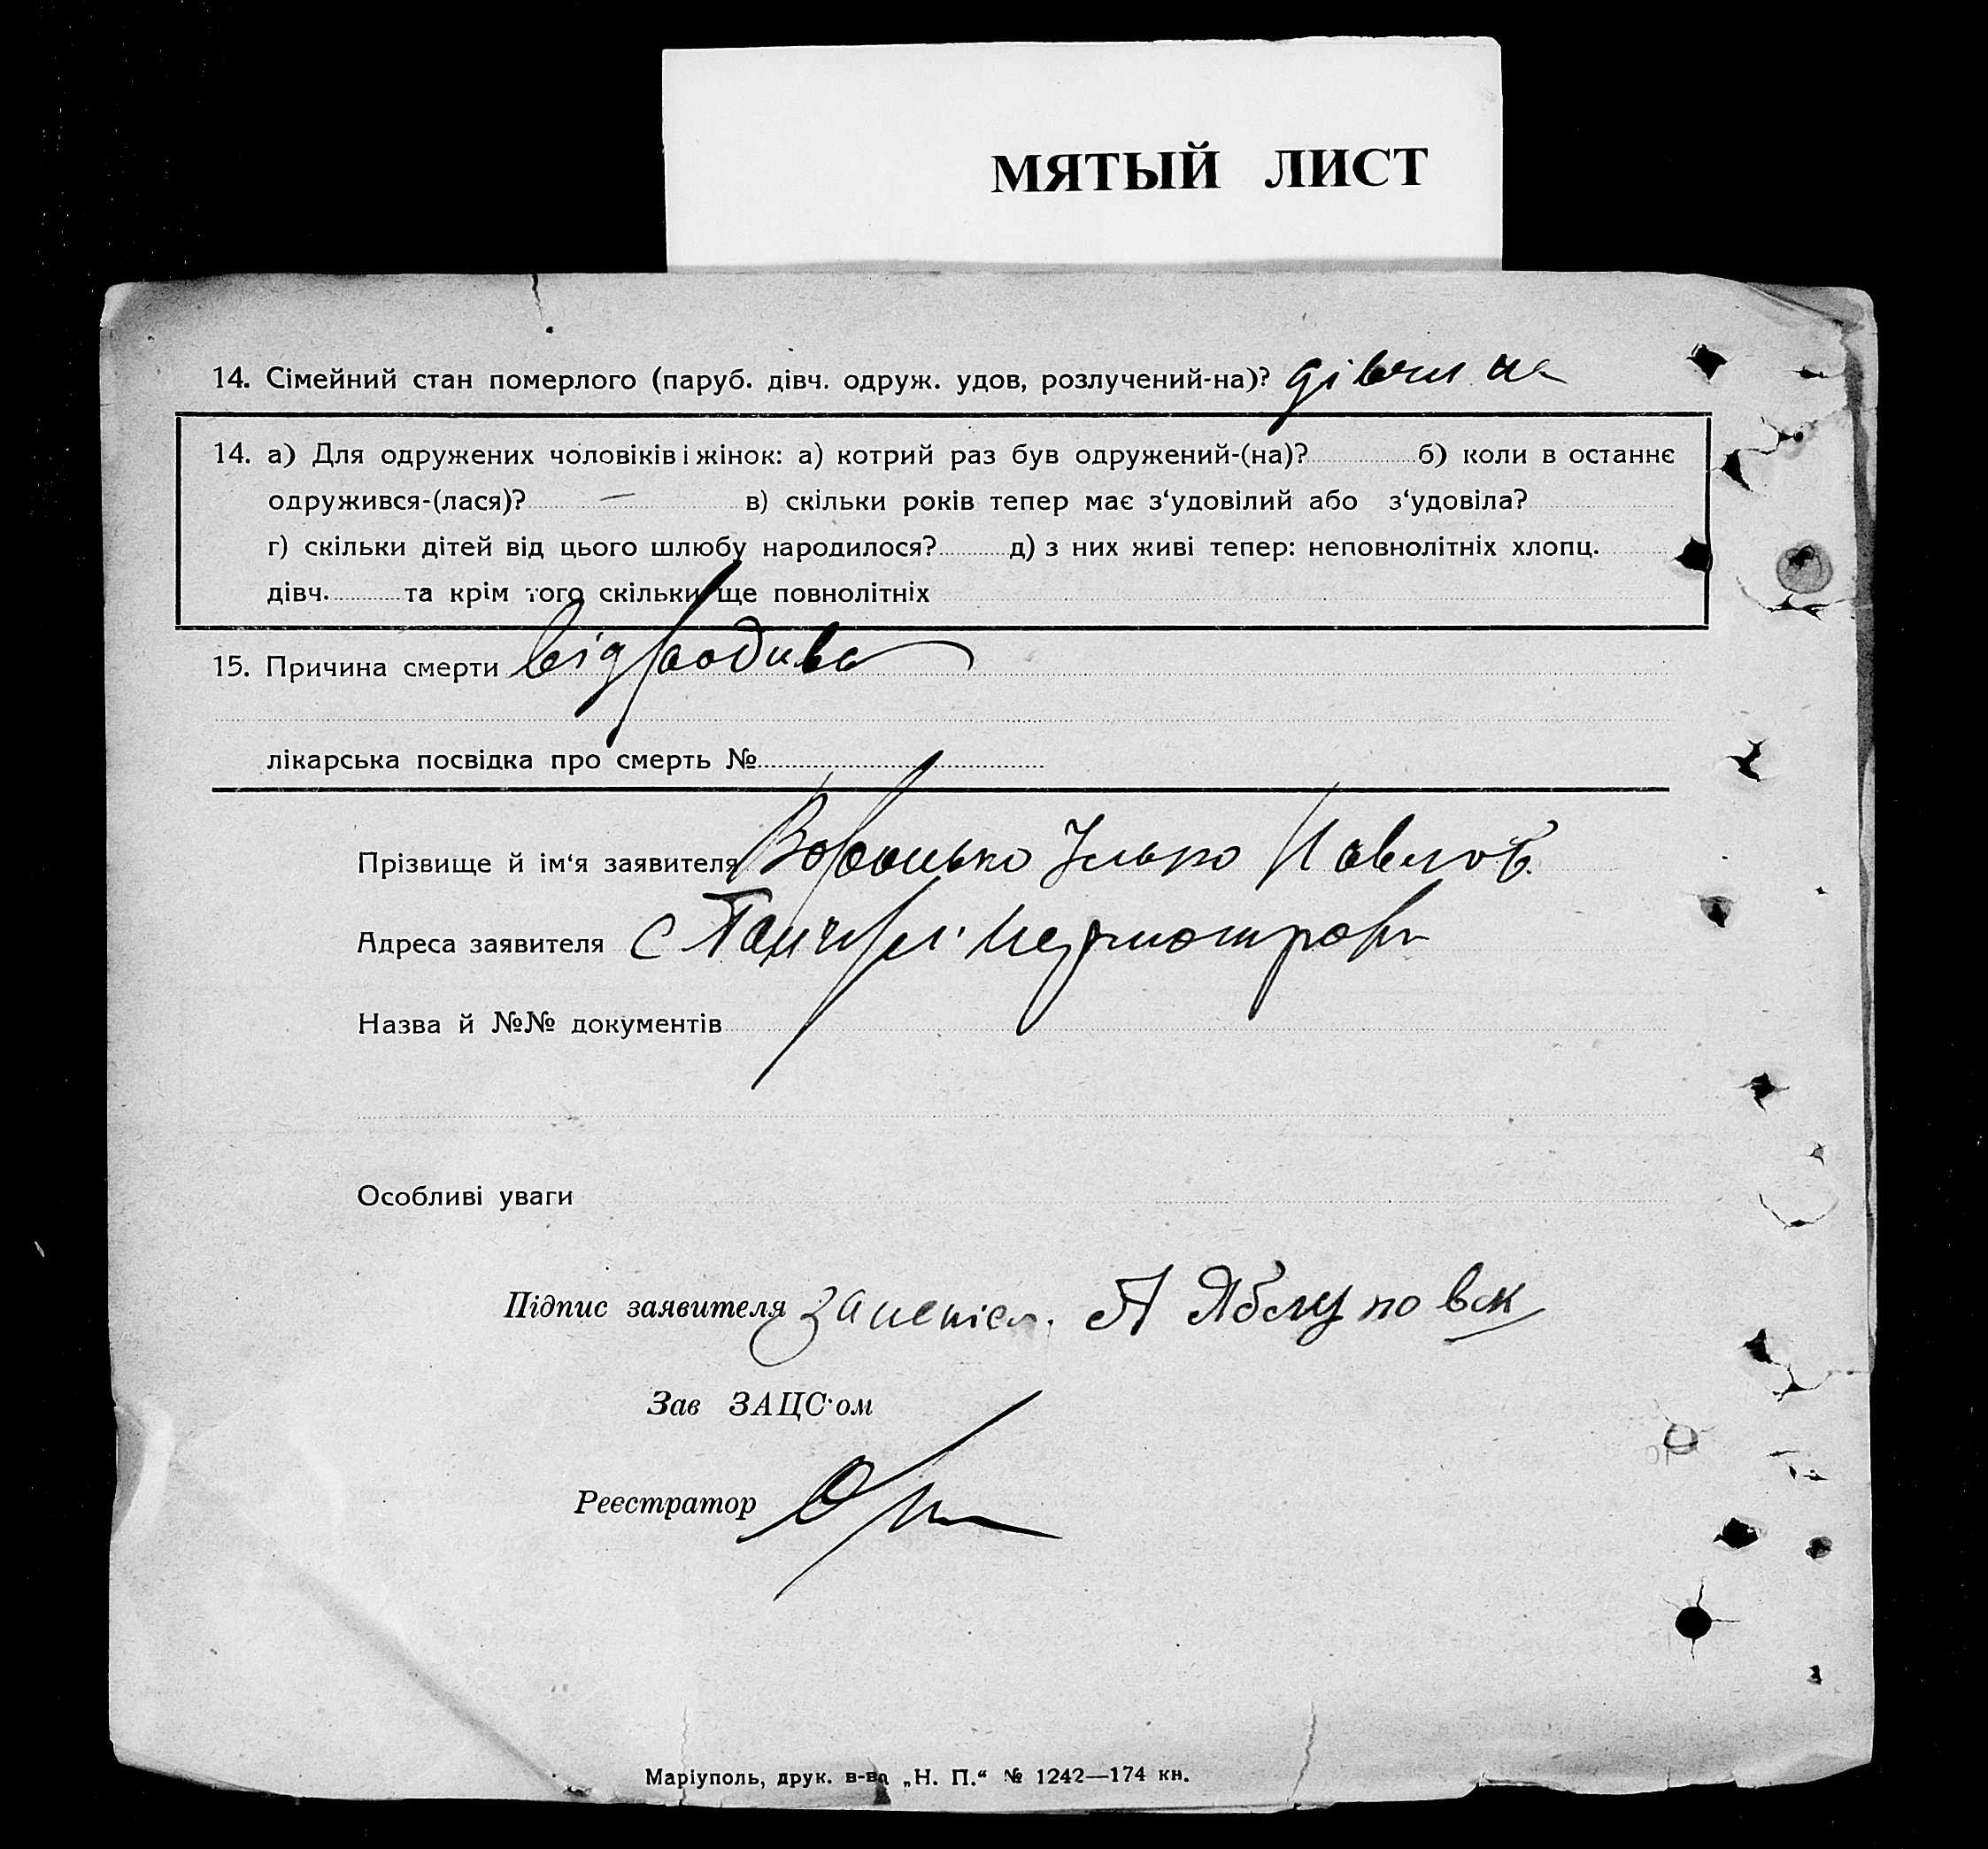 МЯТЫЙ ЛИСТ
14. Сімейний стан померлого (паруб. дівч. одруж. удов, розлучений-на)? дівчина
14. а) Для одружених чоловіків і жінок: а) котрий раз був одружений-(на)? б) коли в останнє
одружився-(лася)? — в) скільки років тепер має з‘удовілий або з‘удовіла?
г) скільки дітей від цього шлюбу народилося? д) з них живі тепер: неповнолітніх хлопц.
дівч. та крім того скільки ще повнолітніх
15. Причина смерти від родива
лікарська посвідка про смерть №
Прізвище й ім‘я заявителя Воронько Ілько Павлов.
Адреса заявителя с
Назва й №№ документів
Особливі уваги
Підпис заявителя А Яблуновск
Зав ЗАЦС‘ом
Реєстратор
Маріуполь, друк. в-ва „Н. П.“ № 1242—174 кн.